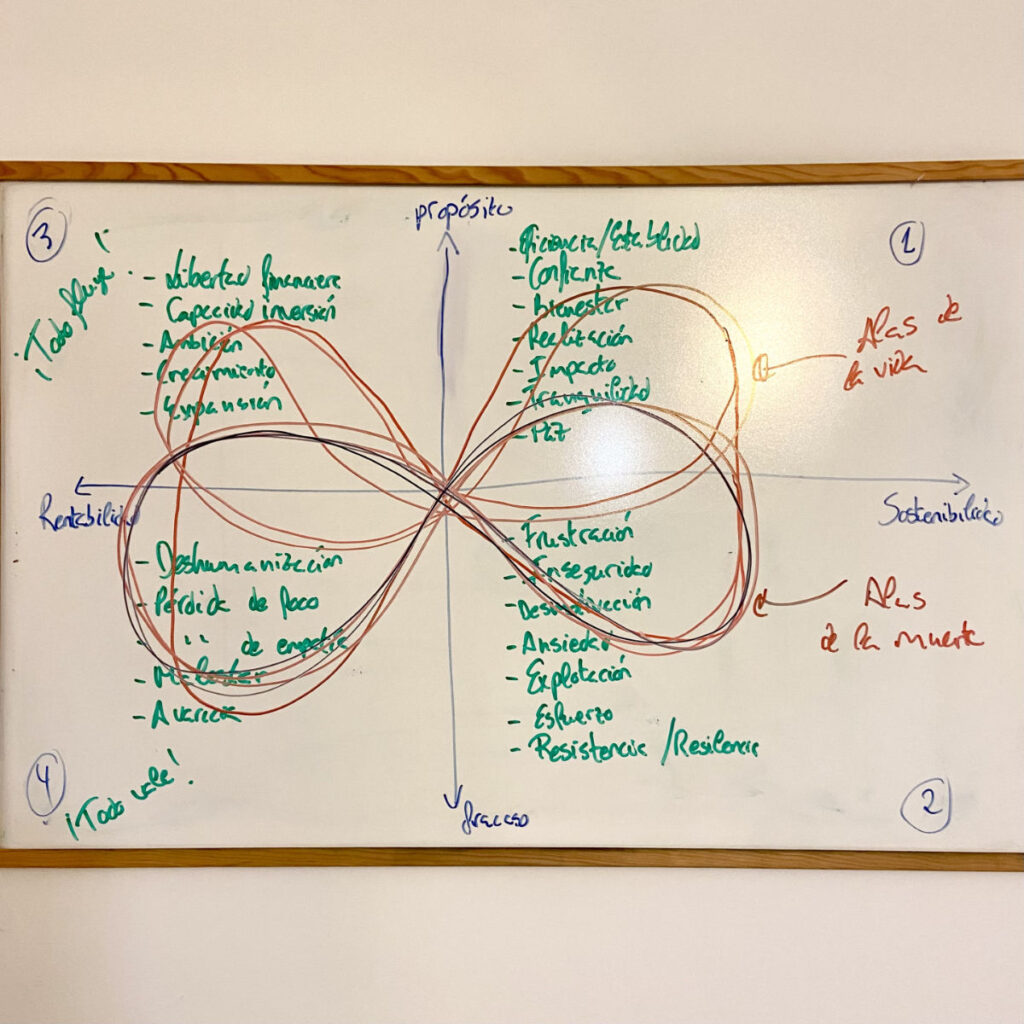 propósito
3
¡Todo fluye!
- Libertad financiera
- Capacidad inversión
- Ambición
- Crecimiento
- Expansión
- Eficiencia/Estabilidad
- Confianza
- Bienestar
- Realización
- Impacto
- Tranquilidad
- Paz
1
Alas de
la vida
Rentabilidad
Sostenibilidad
- Deshumanización
- Pérdida de foco
- " de empatía
- Malestar
- Avaricia
- Frustración
- Inseguridad
- Desmotivación
- Ansiedad
- Explotación
- Esfuerzo
- Resistencia /Resiliencia
Alas
de la muerte
4
¡Todo vale!
fracaso
2